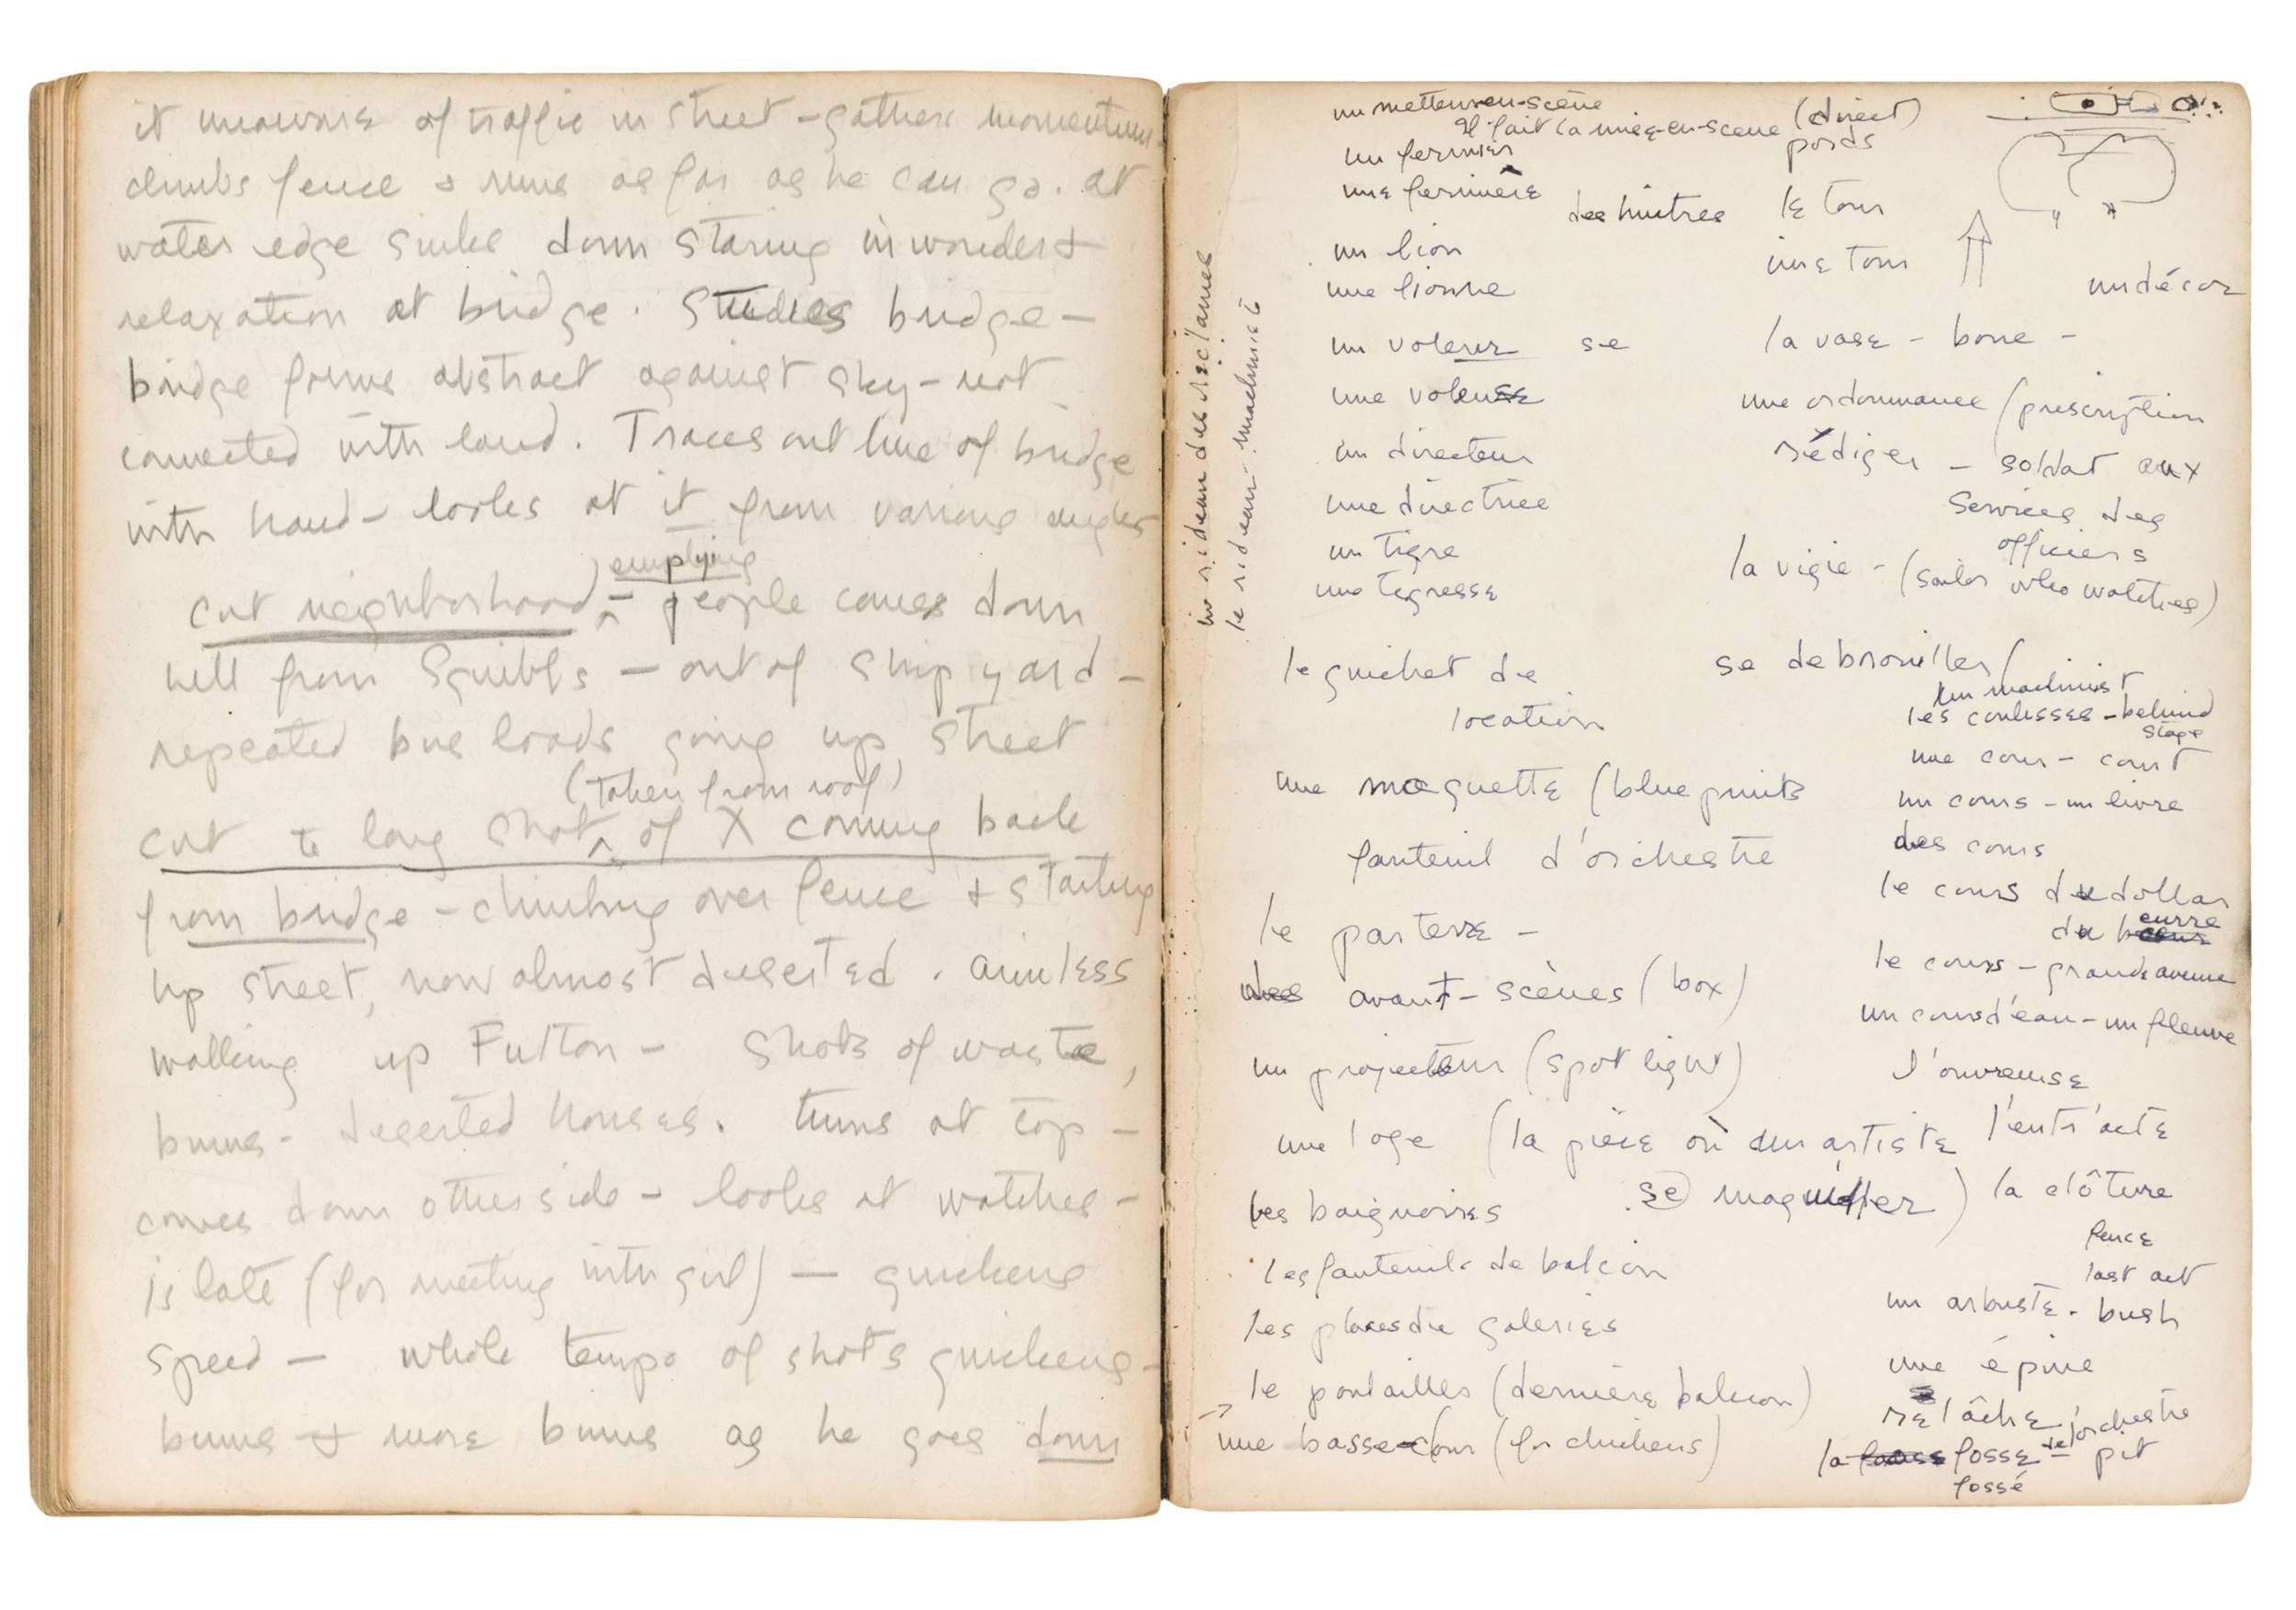 it unaware of traffic in street - gathers momentum
climbs fence & runs as far as he can go. at
water edge sinks down staring in wonder &
relaxation at bridge. Studies bridge -
bridge forms abstract against sky - not
connected with land. Traces out line of bridge
with hand - looks at it from various angles
emptying
cut neighborhood - people comes down
hill from Squibbs - out of ship yard -
repeated bus loads going up street
(taken from roof)
cut to long shot of X coming back
from bridge - climbing over fence & starting
up street, now almost deserted. aimless
walking up Fulton - shots of waste,
bums - deserted houses. turns at top -
comes down other side - looks at watches -
is late (for meeting with girl) - quickens
speed - whole tempo of shots quickens -
bums & more bums as he goes down
un metteur-en-scène
Il fait la mise-en-scene (direct)
un fermier
poids
une fermière
des huitres
le tour
un lion
une tour
une lionne
un décor
un voleur
se
la vase - boue -
une voleuse
une ordonnance (prescription
un directeur
rédiger - soldat aux
une directrice
services des
officiers
un tigre
la vigie - (sailor who watches)
une tigresse
le guichet de
location
se debrouiller
un machinist
les coulisses - behind
stage
une cour - court
une maquette (blue prints
un cours - un livre
fauteuil d'orchestre
des cours
le cours du dollar
le parterre -
du beurre
des avant-scènes (box)
le cours - grande avenue
un projecteur (spot light)
un cours d'eau - un fleuve
l'ouvreuse
une loge (la pièce où un artiste
se maquiller)
l'entr'acte
les baignoires
la clôture
fence
last act
les fauteuils de balcon
un arbuste - bush
les places du galeries
une épine
le poulailles (dernière balcon)
relâche
une basse-cour (for chickens)
de l'orchestre
la fosse - pit
fossé
un rideau des réclames
le rideau - machiniste